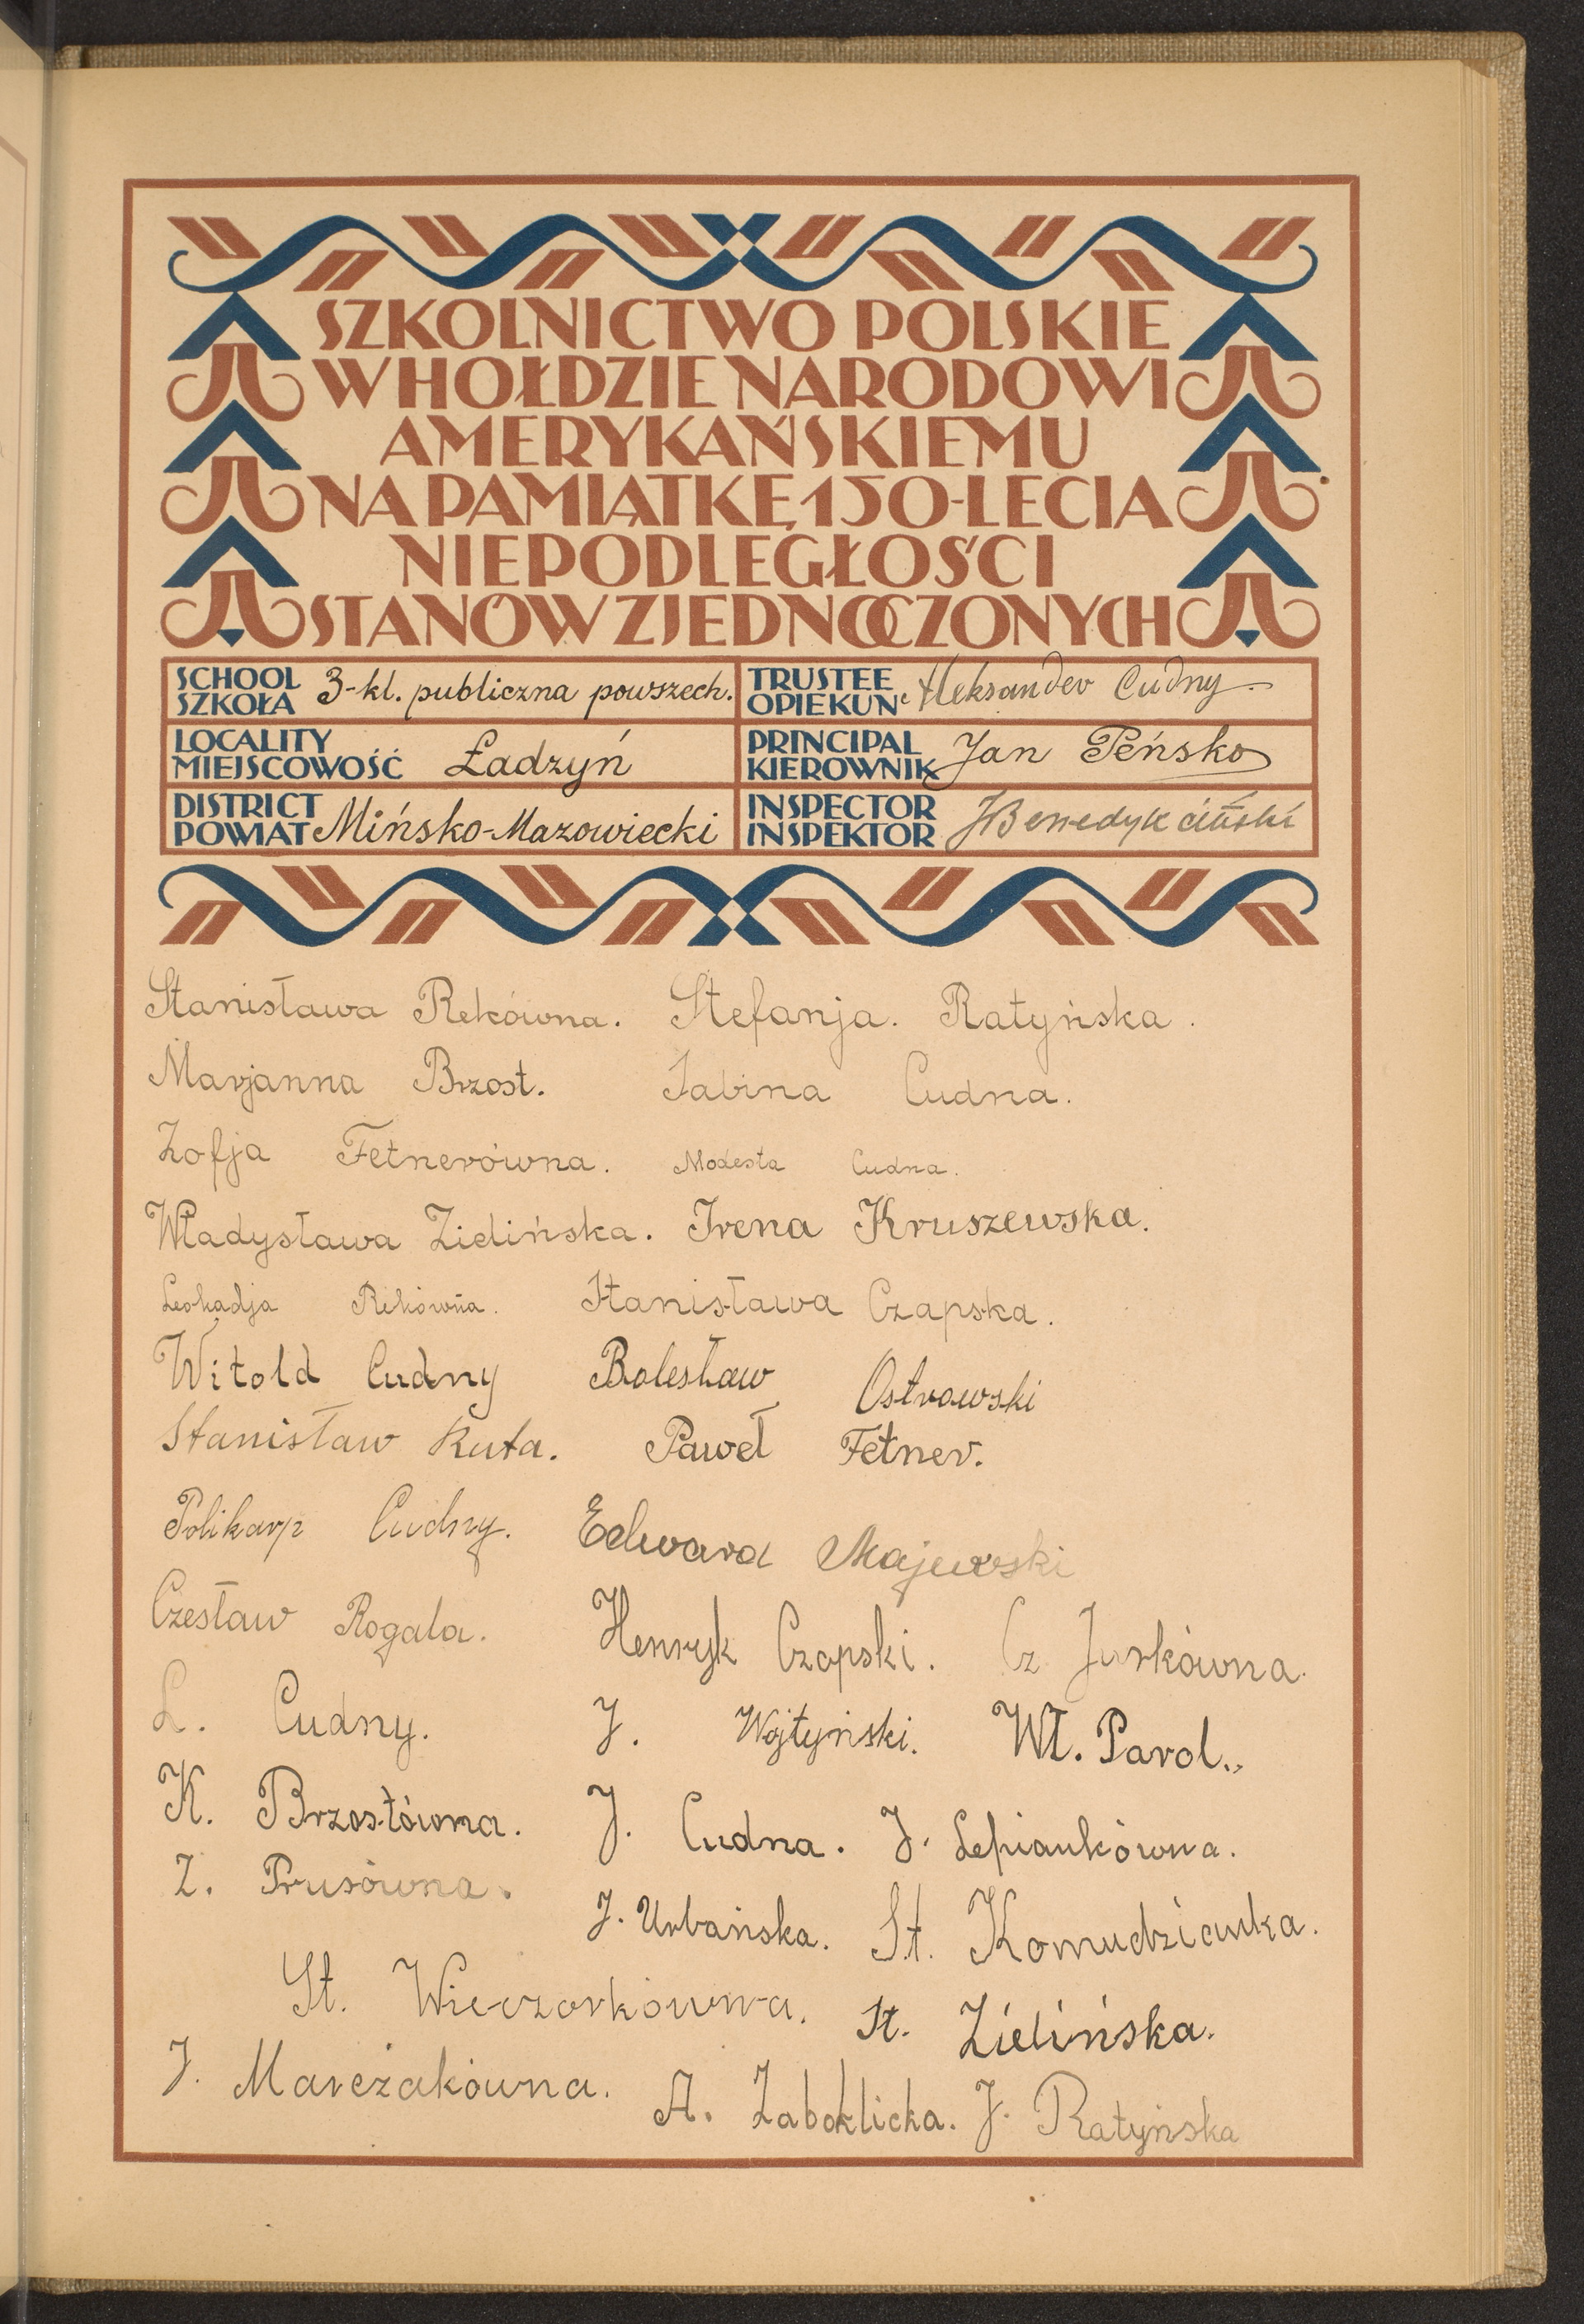 SZKOLNICTWO POLSKIE
W HOŁDZIE NARODOWI
AMERYKAŃSKIEMU
NA PAMIĄTKĘ 150-LECIA
NIEPODLEGŁOŚCI
STANÓW ZJEDNOCZONYCH
SCHOOL
SZKOŁA 3-kl. publiczna powszech.
TRUSTEE
OPIEKUN Aleksander Cudny.
LOCALITY
MIEJSCOWOŚĆ Ładzyń
PRINCIPAL
KIEROWNIK Jan Peńsko
DISTRICT
POWIAT Mińsko-Mazowiecki
INSPECTOR
INSPEKTOR J Benedykciński
Stanisława Rekówna. Stefanja. Ratyńska.
Marjanna Brzost. Sabina Cudna.
Zofja Fetnerówna. Modesta Cudna.
Władysława Zielińska. Irena Kruszewska.
Leokadja Rekówna. Stanisława Czapska.
Witold Cudny Bolesław Ostrowski
Stanisław Ruta. Paweł Fetner.
Polikarp Cudny. Edward Majewski
Czesław Rogala. Henryk Czapski. Cz Jurkówna.
L. Cudny. J. Wojtyński. Wł. Parol.,
K. Brzostówna. J. Cudna. J. Lepiankówna.
Z. Prusówna. J. Urbańska. St. Komudzianka.
St. Wieczorkówna. St. Zielińska.
J. Marczakówna. A. Zaboklicka. J. Ratyńska